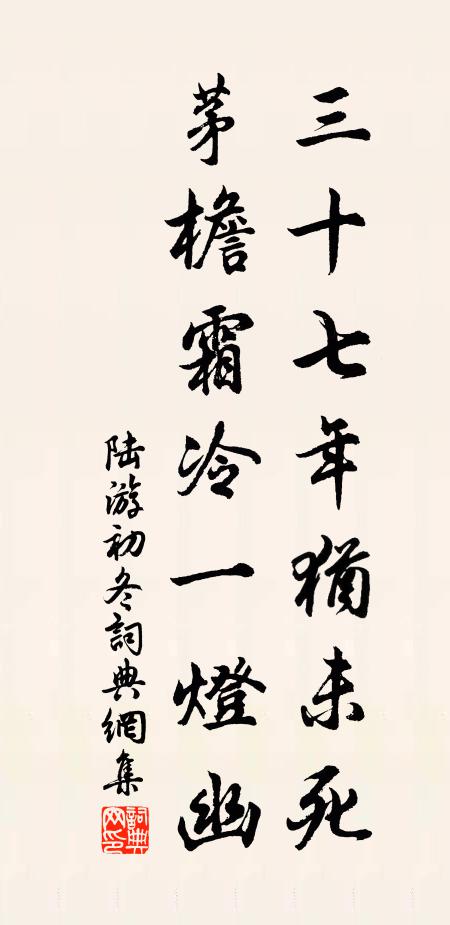 三十七年猶未死
茅檐霜冷一燈幽
陸游初冬詞典網集
詞典网印